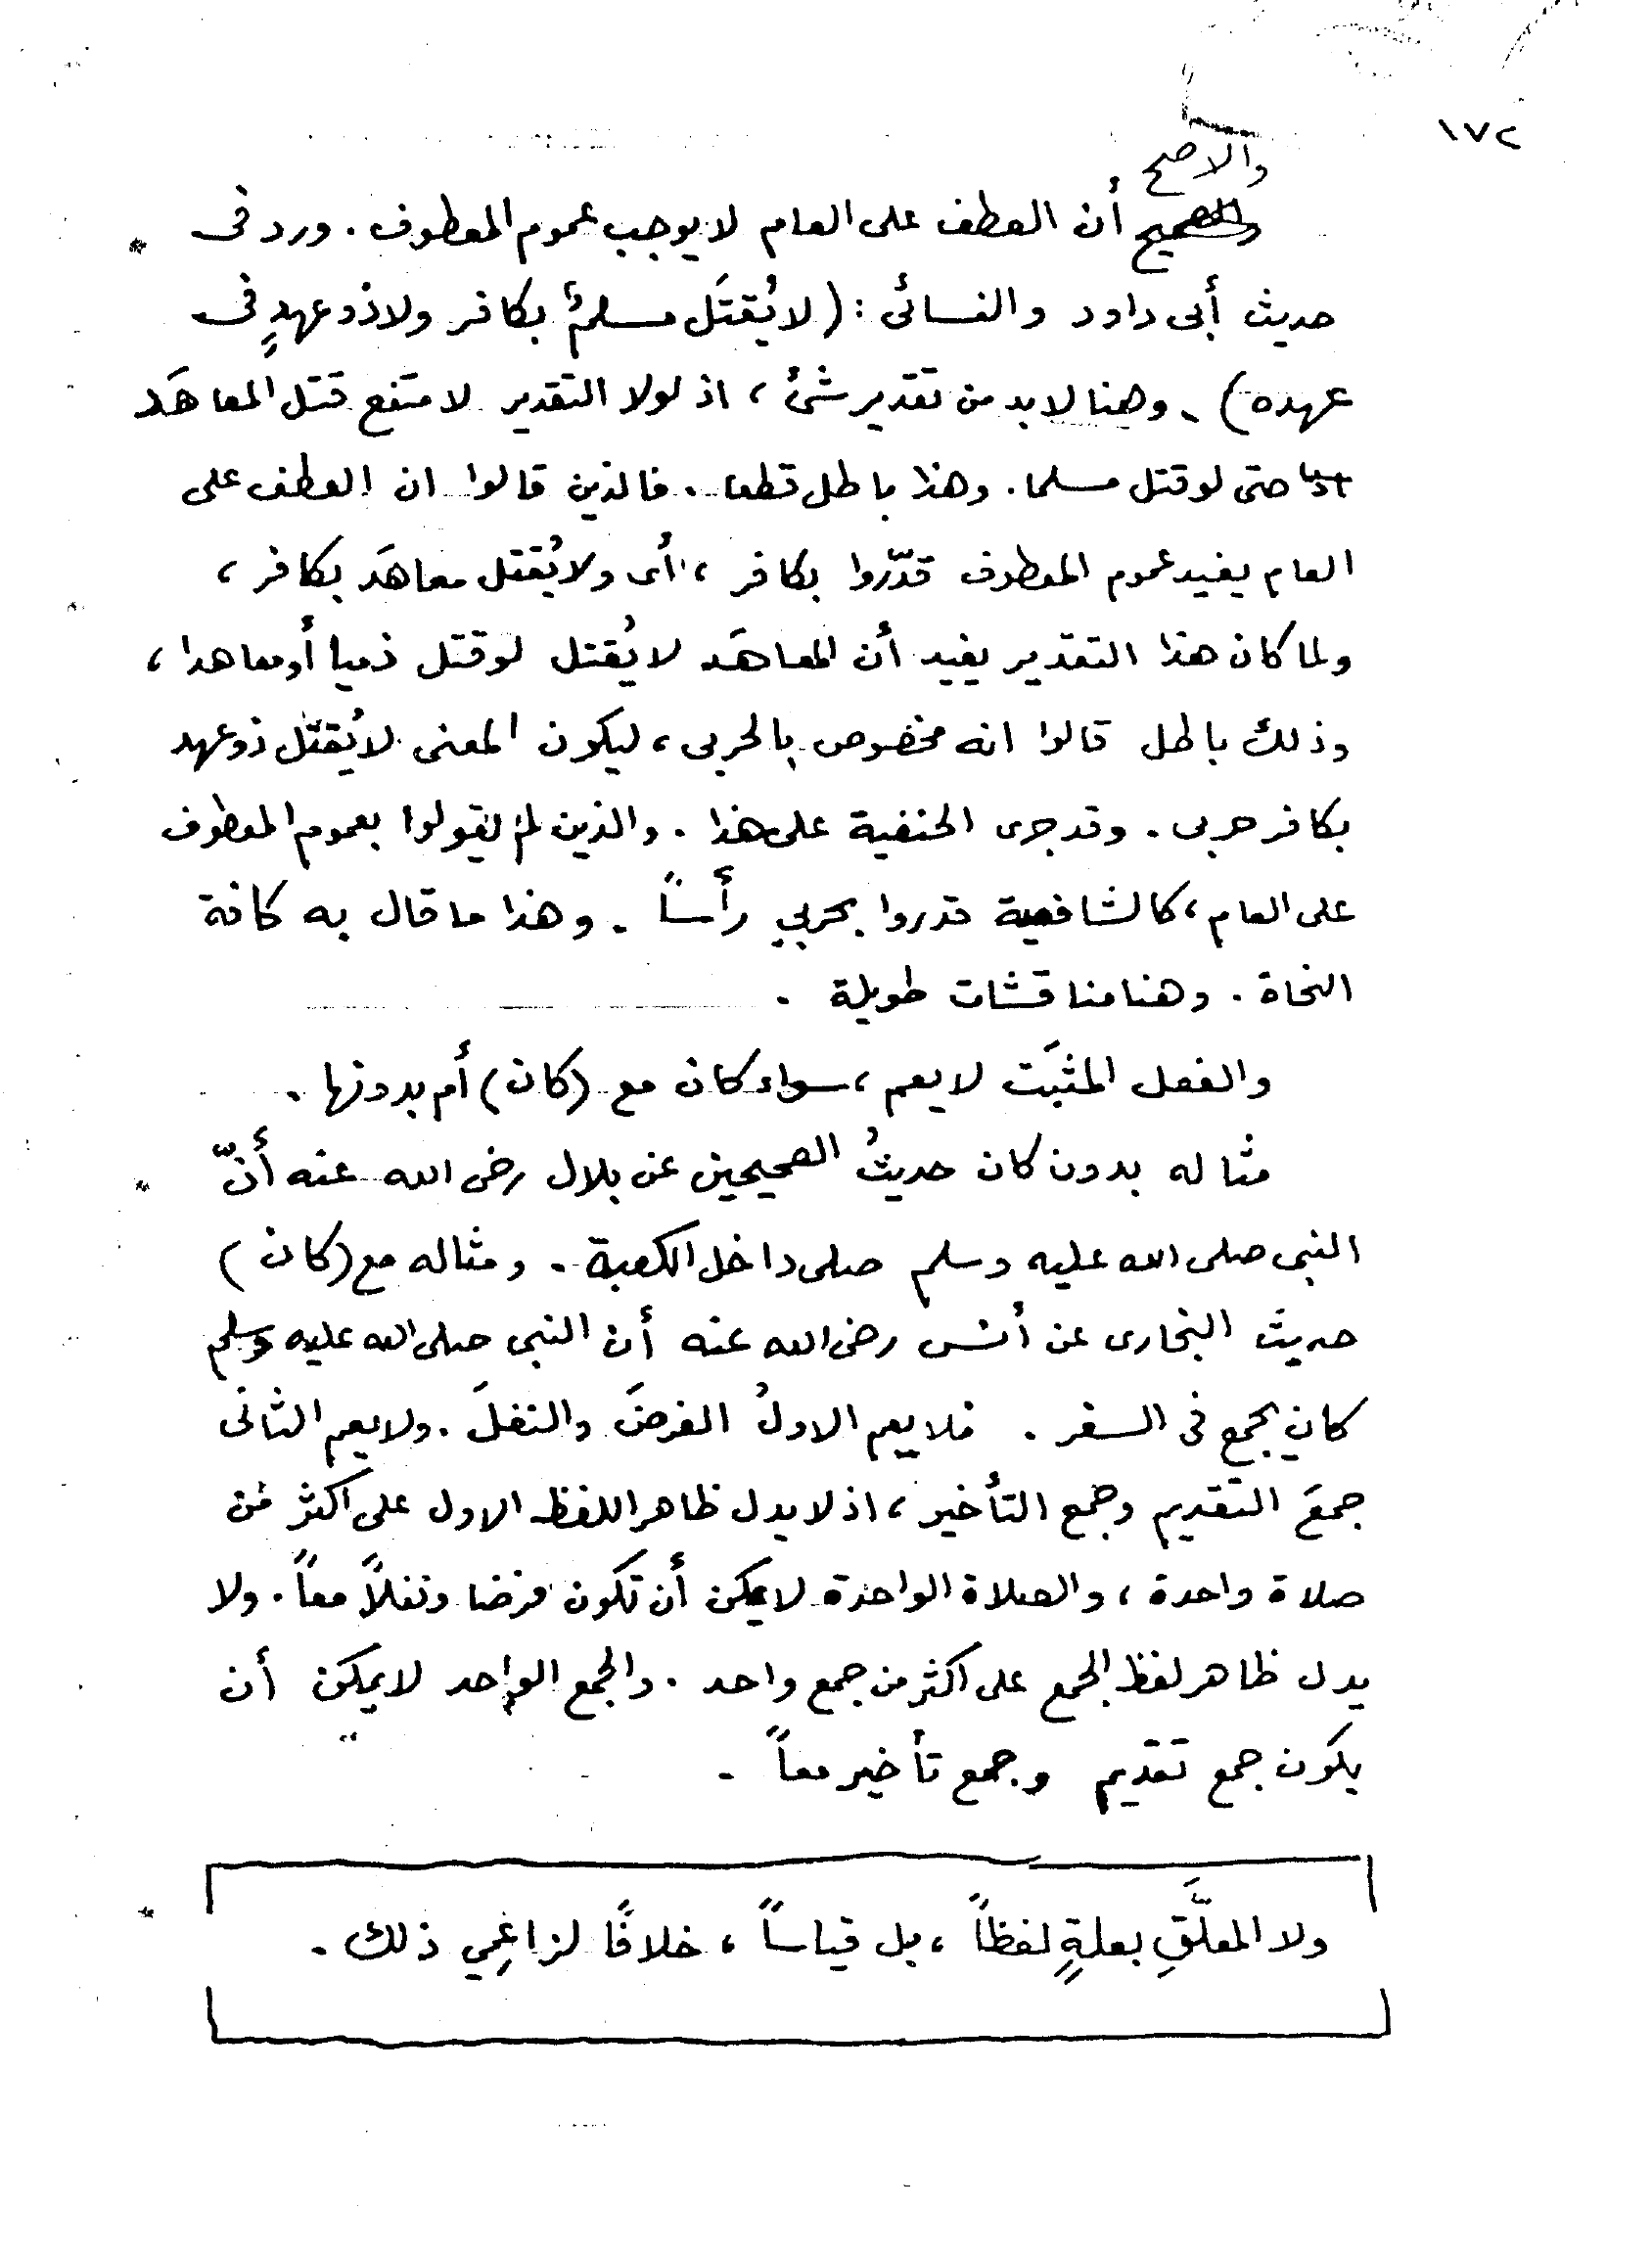 ١٧٢
والاصح
والصحيح أن العطف على العام لا يوجب عموم المعطوف . ورد فى *
حديث أبى داود والنسائى : ( لا يُقتَل مسلمٌ بكافر ولا ذو عهدٍ فى
عهده ) . وهنا لابد من تقدير شئ ، اذ لولا التقدير لامتنع قتل المعاهَد
حتى لو قتل مسلما . وهذا باطل قطعا . فالذين قالوا ان العطف على
العام يفيد عموم المعطوف قدّروا بكافر ، أى ولا يُقتل معاهَد بكافر ،
ولما كان هذا التقدير يفيد أن المعاهَد لا يُقتل لو قتل ذميا أو معاهدا ،
وذلك باطل قالوا انه مخصوص بالحربى ، ليكون المعنى لا يُقتَل ذو عهد
بكافر حربى . وقد جرى الحنفية على هذا . والذين لم يقولوا بعموم المعطوف
على العام ، كالشافعية قدروا بحربيٍ رأساً . وهذا ما قال به كافة
النحاة . وهنا مناقشات طويلة .
والفعل المثبَت لا يعم ، سواء كان مع (كان) أم بدونها .
مثاله بدون كان حديثُ الصحيحين عن بلال رضى الله عنه أنّ *
النبى صلى الله عليه وسلم صلى داخل الكعبة . ومثاله مع (كان )
حديث البخارى عن أنس رضى الله عنه أن النبى صلى الله عليه وسلم
كان يجمع فى السفر . فلا يعم الاولُ الفرضَ والنفلَ . ولا يعم الثانى
جمعَ التقديم وجمع التأخير ، اذ لا يدل ظاهر اللفظ الاول على اكثر من
صلاة واحدة ، والصلاة الواحدة لا يمكن أن تكون فرضا ونفلاً معاً . ولا
يدل ظاهر لفظ الجمع على اكثر من جمع واحد . والجمع الواحد لا يمكن أن
يكون جمع تقديم وجمع تأخير معاً .
ولا المعلَّقِ بعلةٍ لفظاً ، بل قياساً ، خلافًا لزاعِمي ذلك . *